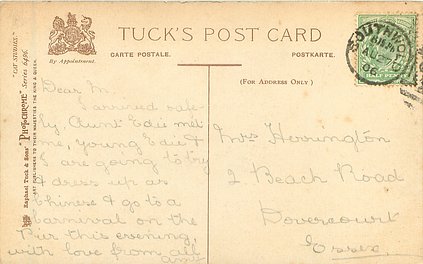 TUCK'S POST CARD
By Appointment.
CARTE POSTALE.
POSTKARTE.
(FOR ADDRESS ONLY)
"CAT STUDIES."
Raphael Tuck & Sons' "PHOTOCHROME" Series 6496.
ART PUBLISHERS TO THEIR MAJESTIES THE KING & QUEEN.
SOUTHWOLD
Dear M.
I arrived safe-
ly, Aunt Edie met
me, young Edie &
I are going to try
& dress up as
Chinese & go to a
carnival on the
Pier this evening,
with love from all
Mrs Herrington
2 Beach Road
Dovercourt
Essex.